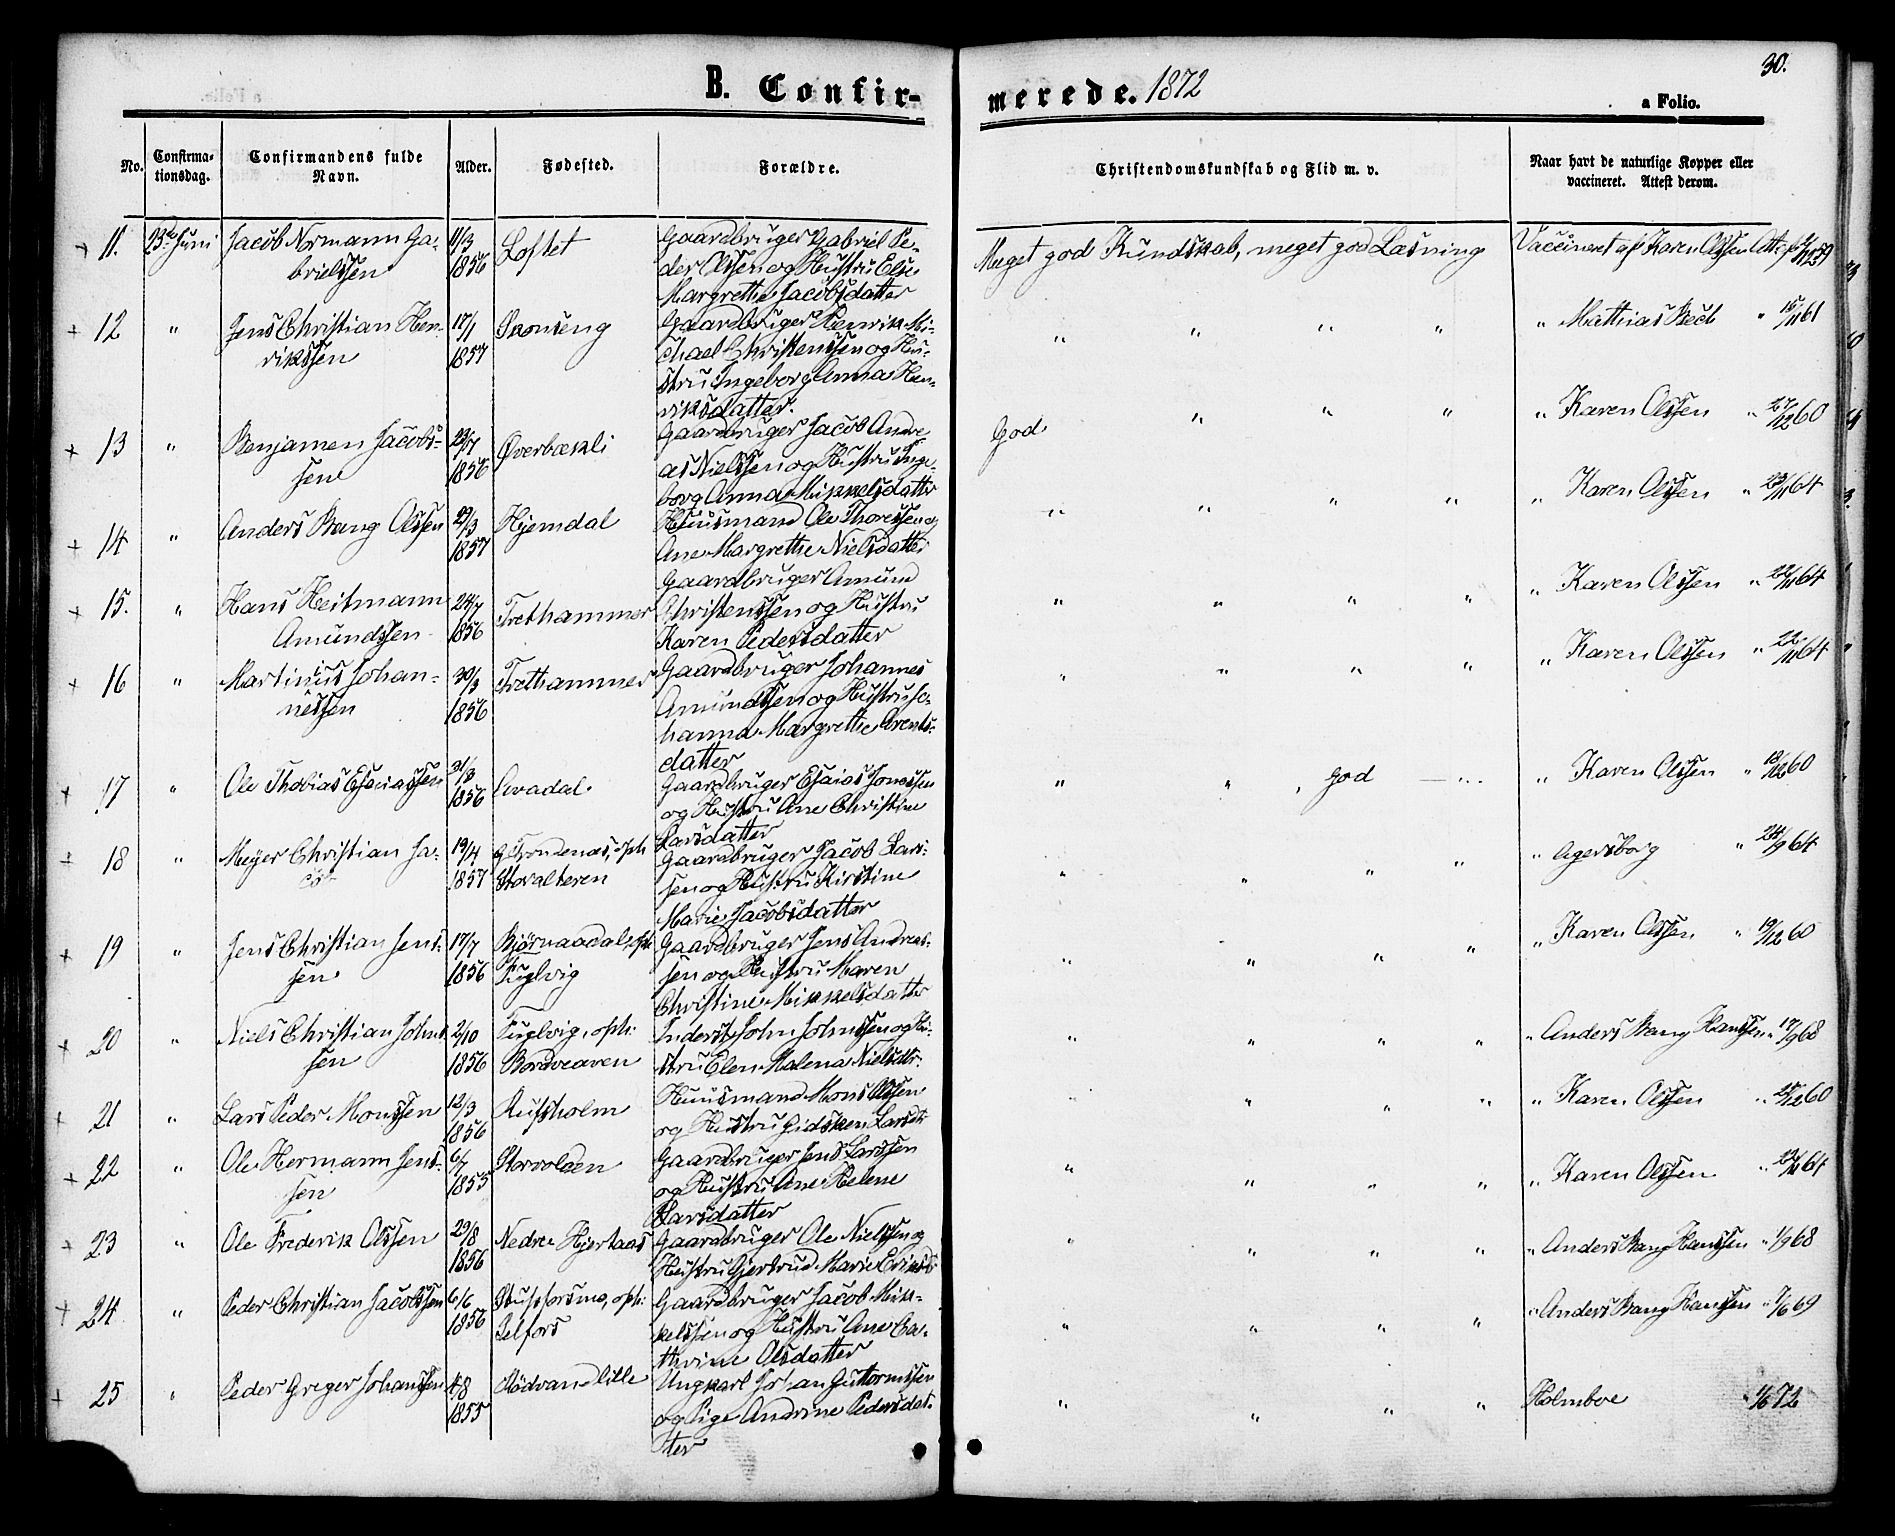 30.
B. Confirmerede. 1872
a Folio.
No.
Confirma-
tionsdag.
Confirmandens fulde
Navn.
Alder.
Fødested.
Forældre.
Christendomskundskab og Flid m. v.
Naar havt de naturlige Kopper eller
vaccineret. Attest derom.
11. 23de Juni Jacob Normann Ga-
brielssen
11/3
1856
Loftet
Gaardbruger Gabriel Pe-
der Olssen og Hustru Else
Margrethe Jacobsdatter
Meget god Kundskab, meget god Læsning
Vaccineret af Karen Olssen Att. af
12 " Jens Christian Hen-
rikssen
17/1
1857
Skonseng
Gaardbruger Henrik Mi-
chael Christenssen og Hu-
stru Ingeborg Anna Hen-
riksdatter.
" " " "
" Mathias Bech " 15/11 61
13 " Benjamen Jacobs-
sen
23/7
1856
Øverbækli
Gaardbruger Jacob Andre-
as Nielssen og Hustru Inge-
borg Anna Mikkelsdatter
God " " "
" Karen Olssen " 27/12 60
14 " Anders Bang Olssen
29/3
1857
Hjemdal
Huusmand Ole Thoressen og
Ane Margrethe Nielsdatter
" " " "
" Karen Olssen " 23/11 64
15. " Hans Heitmann
Amundssen
24/7
1856
Frethammer
Gaardbruger Amund
Christenssen og Hustru
Karen Pedersdatter
" " " "
" Karen Olssen " 22/11 64
16 " Martinus Johan-
nessen
30/3
1856
Frethammer
Gaardbruger Johannes
Amundssen og Hustru Jo-
hanna Margrethe Arents-
datter
" " " "
" Karen Olssen " 22/11 64
17 " Ole Thobias Esaiassen
31/8
1856
Svadal
Gaardbruger Esaias Jonassen
og Hustru Ane Christine
Larsdatter
" " god — "
" Karen Olssen " 18/12 60
18 " Meyer Christian Ja-
19/4
1857
Storalteren
Gaardbruger Jacob Lars-
sen og Hustru Kirstine
Marie Jacobsdatter
" " " "
" Agersborg " 24/9 64
19 " Jens Christian Jens-
sen
17/7
1856
Bjørnaadal, oph.
Fuglvig
Gaardbruger Jens Andreas-
sen og Hustru Maren
Christine Mikkelsdatter
" " " "
" Karen Olssen " 19/12 60
20 " Niels Christian Johns-
sen
2/10
1856
Fuglvig, oph:
Inderst John Johnssen og Hu-
stru Elen Malena Nielsdtr.
" " " "
" Anders Bang Hanssen " 17/9 68
21 " Lars Peder Monssen
12/3
1856
Huusmand Mons Olssen
og Hustru Gidsken Larsdt
" " " "
" Karen Olssen " 25/12 60
22 " Ole Hermann Jens-
sen
6/7
1855
Storvolden
Gaardbruger Jens Larssen
og Hustru Ane Helene
Larsdatter
" " " "
" Karen Olssen " 64
23 " Ole Frederik Olssen
29/8
1856
Nedre Hjertaas
Gaardbruger Ole Nielssen og
Hustru Gjertrud Marie Eriksdt
" " " "
" Anders Bang Hanssen " 1/9 68
24 " Peder Christian Jacobssen
6/6
1856
oph:
Selfors
Gaardbruger Jacob Mik-
kelssen og Hustru Ane Ca-
thrine Olsdatter
" " " "
" Anders Bang Hanssen " 7/6 69
25 " Peder Greger Johanssen
4/8
1855
Mødvandlille
Ungkarl Johan Guttormssen
og Pige Andrine Pedersdat-
ter
" " " "
Holmboe